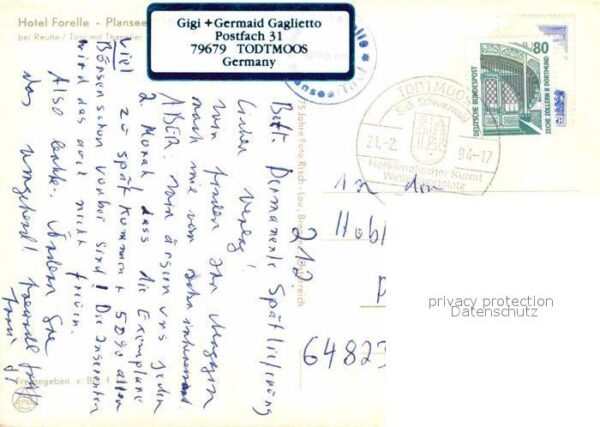 Hotel Forelle - Plansee
bei Reutte / Tirol mit Thaneller
Gigi + Germaid Gaglietto
Postfach 31
79679 TODTMOOS
Germany
80
DEUTSCHE BUNDESPOST
ZECHE ZOLLERN II DORTMUND
TODTMOOS
Südl. Schwarzwald
21.-2. 94-17
Heilklimatischer Kurort
75 Jahre Foto Risch-Lau, Bregenz
Betr. Permanente Spätlieferung
Lieber Verlag!
wir finden Ihr Magazin
nach wie vor sehr interessant
ABER: wir ärgern uns jeden
2. Monat, dass die Exemplare
viel zu spät kommen + 50% aller
Börsen schon vorbei sind! Die Inserenten
wird das auch nicht freuen.
Also bitte: Ändern Sie
das umgehend!
Gigi
An den
Hobb
212
64823
privacy protection
Datenschutz
Freigegeben v. B